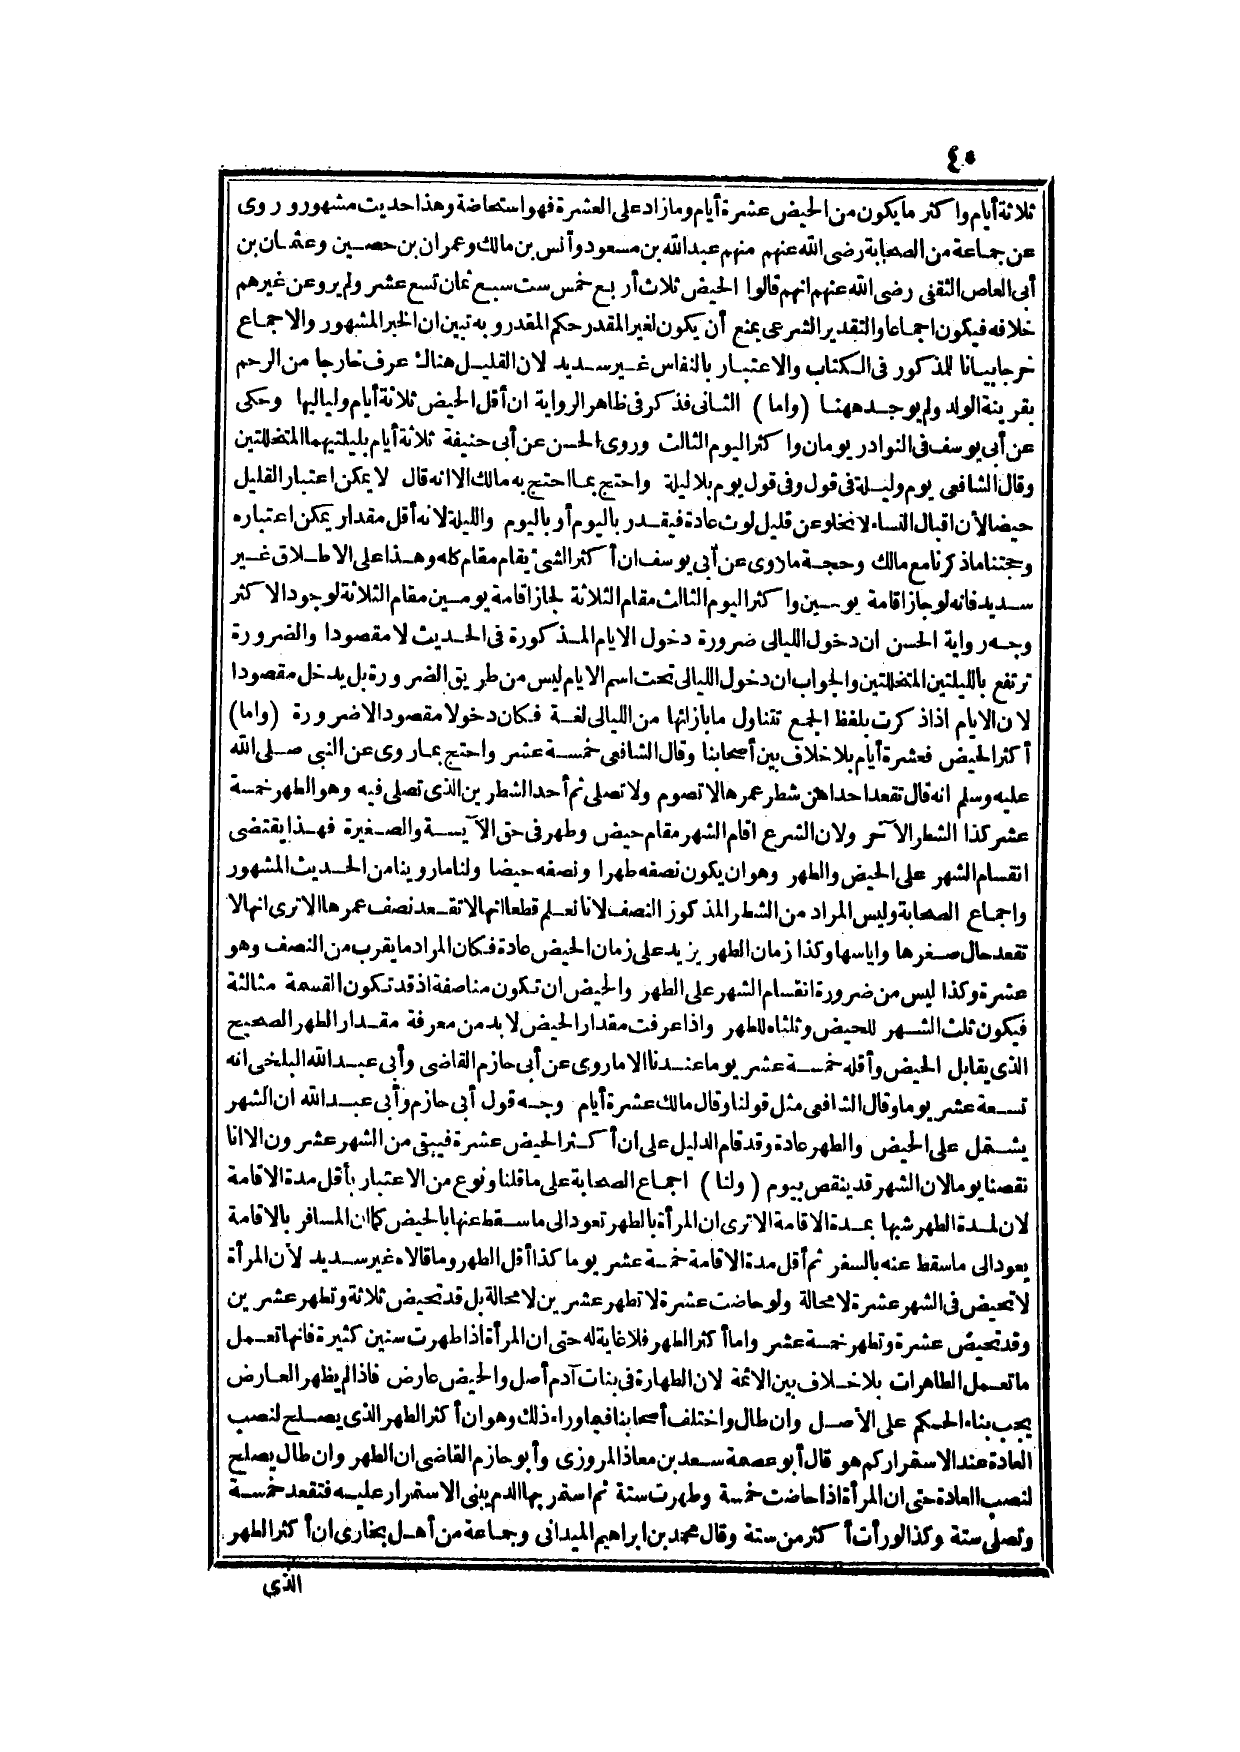 ٤٠
ثلاثة أيام وأكثر ما يكون من الحيض عشرة أيام وما زاد على العشرة فهو استحاضة وهذا حديث مشهور وروى
عن جماعة من الصحابة رضى الله عنهم منهم عبد الله بن مسعود وأنس بن مالك وعمران بن حصين وعثمان بن
أبى العاص الثقفى رضى الله عنهم انهم قالوا الحيض ثلاث أربع خمس ست سبع ثمان تسع عشر ولم يرو عن غيرهم
خلافه فيكون اجماعا والتقدير الشرعى يمنع أن يكون لغير المقدر حكم المقدر وبه تبين ان الخبر المشهور والاجماع
خرجا بيانا للمذكور فى الكتاب والاعتبار بالنفاس غير سديد لان القليل هناك عرف خارجا من الرحم
بقرينة الولد ولم يوجد ههنا (واما) الثانى فذكر فى ظاهر الرواية ان أقل الحيض ثلاثة أيام ولياليها وحكى
عن أبى يوسف فى النوادر يومان وأكثر اليوم الثالث وروى الحسن عن أبى حنيفة ثلاثة أيام بليلتيهما المتخللتين
وقال الشافعى يوم وليلة فى قول وفى قول يوم بلا ليلة واحتج بما احتج به مالك الا انه قال لا يمكن اعتبار القليل
حيضا لأن اقبال النساء لا تخلو عن قليل لوث عادة فيقدر باليوم أو باليوم والليلة لانه أقل مقدار يمكن اعتباره
وحجتنا ما ذكرنا مع مالك وحجة ما روى عن أبى يوسف ان أكثر الشئ يقام مقام كله وهذا على الاطلاق غير
سديد فانه لو جاز اقامة يومين وأكثر اليوم الثالث مقام الثلاثة لجاز اقامة يومين مقام الثلاثة لوجود الاكثر
وجه رواية الحسن ان دخول الليالى ضرورة دخول الايام المذكورة فى الحديث لا مقصودا والضرورة
ترتفع بالليلتين المتخللتين والجواب ان دخول الليالى تحت اسم الايام ليس من طريق الضرورة بل يدخل مقصودا
لان الايام اذا ذكرت بلفظ الجمع تتناول ما بازائها من الليالى لغة فكان دخولا مقصودا لا ضرورة (واما)
أكثر الحيض فعشرة أيام بلا خلاف بين أصحابنا وقال الشافعى خمسة عشر واحتج بما روى عن النبى صلى الله
عليه وسلم انه قال تقعد احداهن شطر عمرها لا تصوم ولا تصلى ثم أحد الشطرين الذى تصلى فيه وهو الطهر خمسة
عشر كذا الشطر الآخر ولان الشرع اقام الشهر مقام حيض وطهر فى حق الآيسة والصغيرة فهذا يقتضى
انقسام الشهر على الحيض والطهر وهو ان يكون نصفه طهرا ونصفه حيضا ولنا ما روينا من الحديث المشهور
واجماع الصحابة وليس المراد من الشطر المذكور النصف لانا نعلم قطعا انها لا تقعد نصف عمرها الا ترى انها لا
تقعد حال صغرها واياسها وكذا زمان الطهر يزيد على زمان الحيض عادة فكان المراد ما يقرب من النصف وهو
عشرة وكذا ليس من ضرورة انقسام الشهر على الطهر والحيض ان تكون مناصفة اذ قد تكون القسمة مثالثة
فيكون ثلث الشهر للحيض وثلثاه للطهر واذا عرفت مقدار الحيض لا بد من معرفة مقدار الطهر الصحيح
الذى يقابل الحيض وأقله خمسة عشر يوما عندنا الا ما روى عن أبى حازم القاضى وأبى عبد الله البلخى انه
تسعة عشر يوما وقال الشافعى مثل قولنا وقال مالك عشرة أيام وجه قول أبى حازم وأبى عبد الله ان الشهر
يشتمل على الحيض والطهر عادة وقد قام الدليل على ان أكثر الحيض عشرة فيبقى من الشهر عشرون الا انا
نقصنا يوما لان الشهر قد ينقص بيوم (ولنا) اجماع الصحابة على ما قلنا ونوع من الاعتبار بأقل مدة الاقامة
لان لمدة الطهر شبها بمدة الاقامة الا ترى ان المرأة بالطهر تعود الى ما سقط عنها بالحيض كما ان المسافر بالاقامة
يعود الى ما سقط عنه بالسفر ثم أقل مدة الاقامة خمسة عشر يوما كذا أقل الطهر وما قالاه غير سديد لأن المرأة
لا تحيض فى الشهر عشرة لا محالة ولو حاضت عشرة لا تطهر عشرين لا محالة بل قد تحيض ثلاثة وتطهر عشرين
وقد تحيض عشرة وتطهر خمسة عشر واما أكثر الطهر فلا غاية له حتى ان المرأة اذا طهرت سنين كثيرة فانها تعمل
ما تعمل الطاهرات بلا خلاف بين الائمة لان الطهارة فى بنات آدم أصل والحيض عارض فاذا لم يظهر العارض
يجب بناء الحكم على الأصل وان طال واختلف أصحابنا فيما وراء ذلك وهو ان أكثر الطهر الذى يصلح لنصب
العادة عند الاستمرار كم هو قال أبو عصمة سعد بن معاذ المروزى وأبو حازم القاضى ان الطهر وان طال يصلح
لنصب العادة حتى ان المرأة اذا حاضت خمسة وطهرت ستة ثم استمر بها الدم يبنى الاستمرار عليه فتقعد خمسة
وتصلى ستة وكذا لو رأت أكثر من ستة وقال محمد بن ابراهيم الميدانى وجماعة من أهل بخارى ان أكثر الطهر
الذى